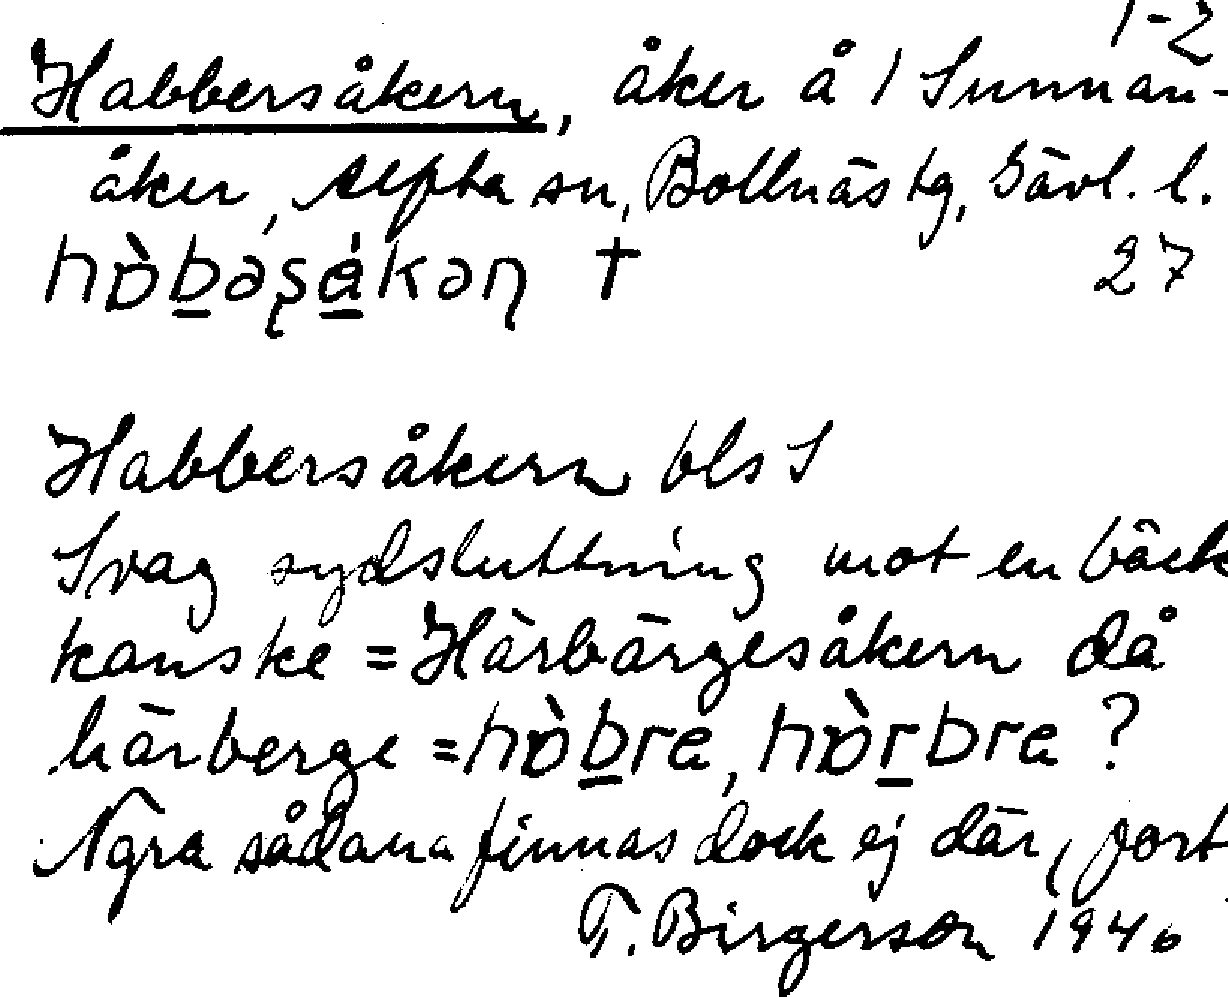 1-2
Habbersåkern, åker å 1 Sunnan-
åker, Alfta sn, Bollnäs tg, Gävl. l.
hɒ̀b̲əʂa̲kəɳ † 27
Habbersåkern bls S
Svag sydsluttning mot en bäck
kanske = Härbärgesåkern då
härberge = hɒ̀b̲re, hɒ̀r̲bre ?
Ngra sådana finnas dock ej där, fort
T. Birgerson 1946